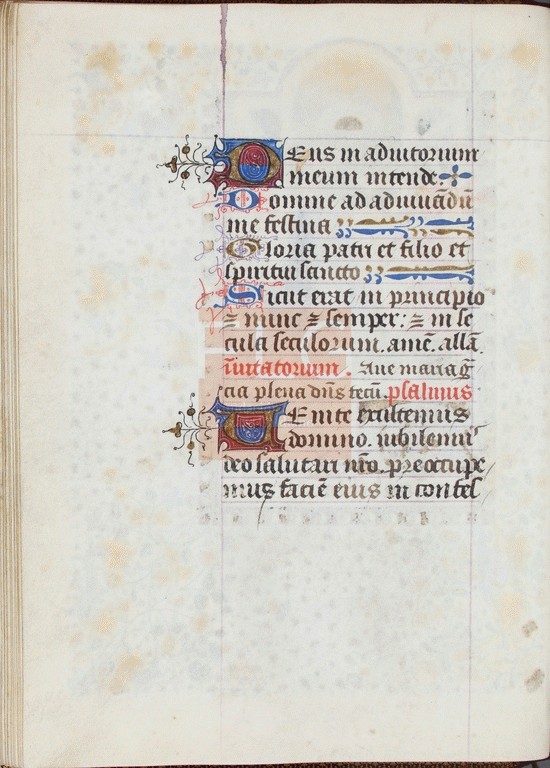 Deus in adiutorium
meum intende.
Domine ad adiuuãdũ
me festina
Gloria patri et filio et
spiritui sancto
Sicut erat in principio
⁊ nunc ⁊ semper: ⁊ in se
cula seculorum. amẽ. allã.
iuitatorium. Aue maria g̃
cia plena dñs tecũ. psalmus
Uenite exultemus
domino. iubilemus
deo salutari nr̃o. preoccupe
mus faciẽ eius in confes